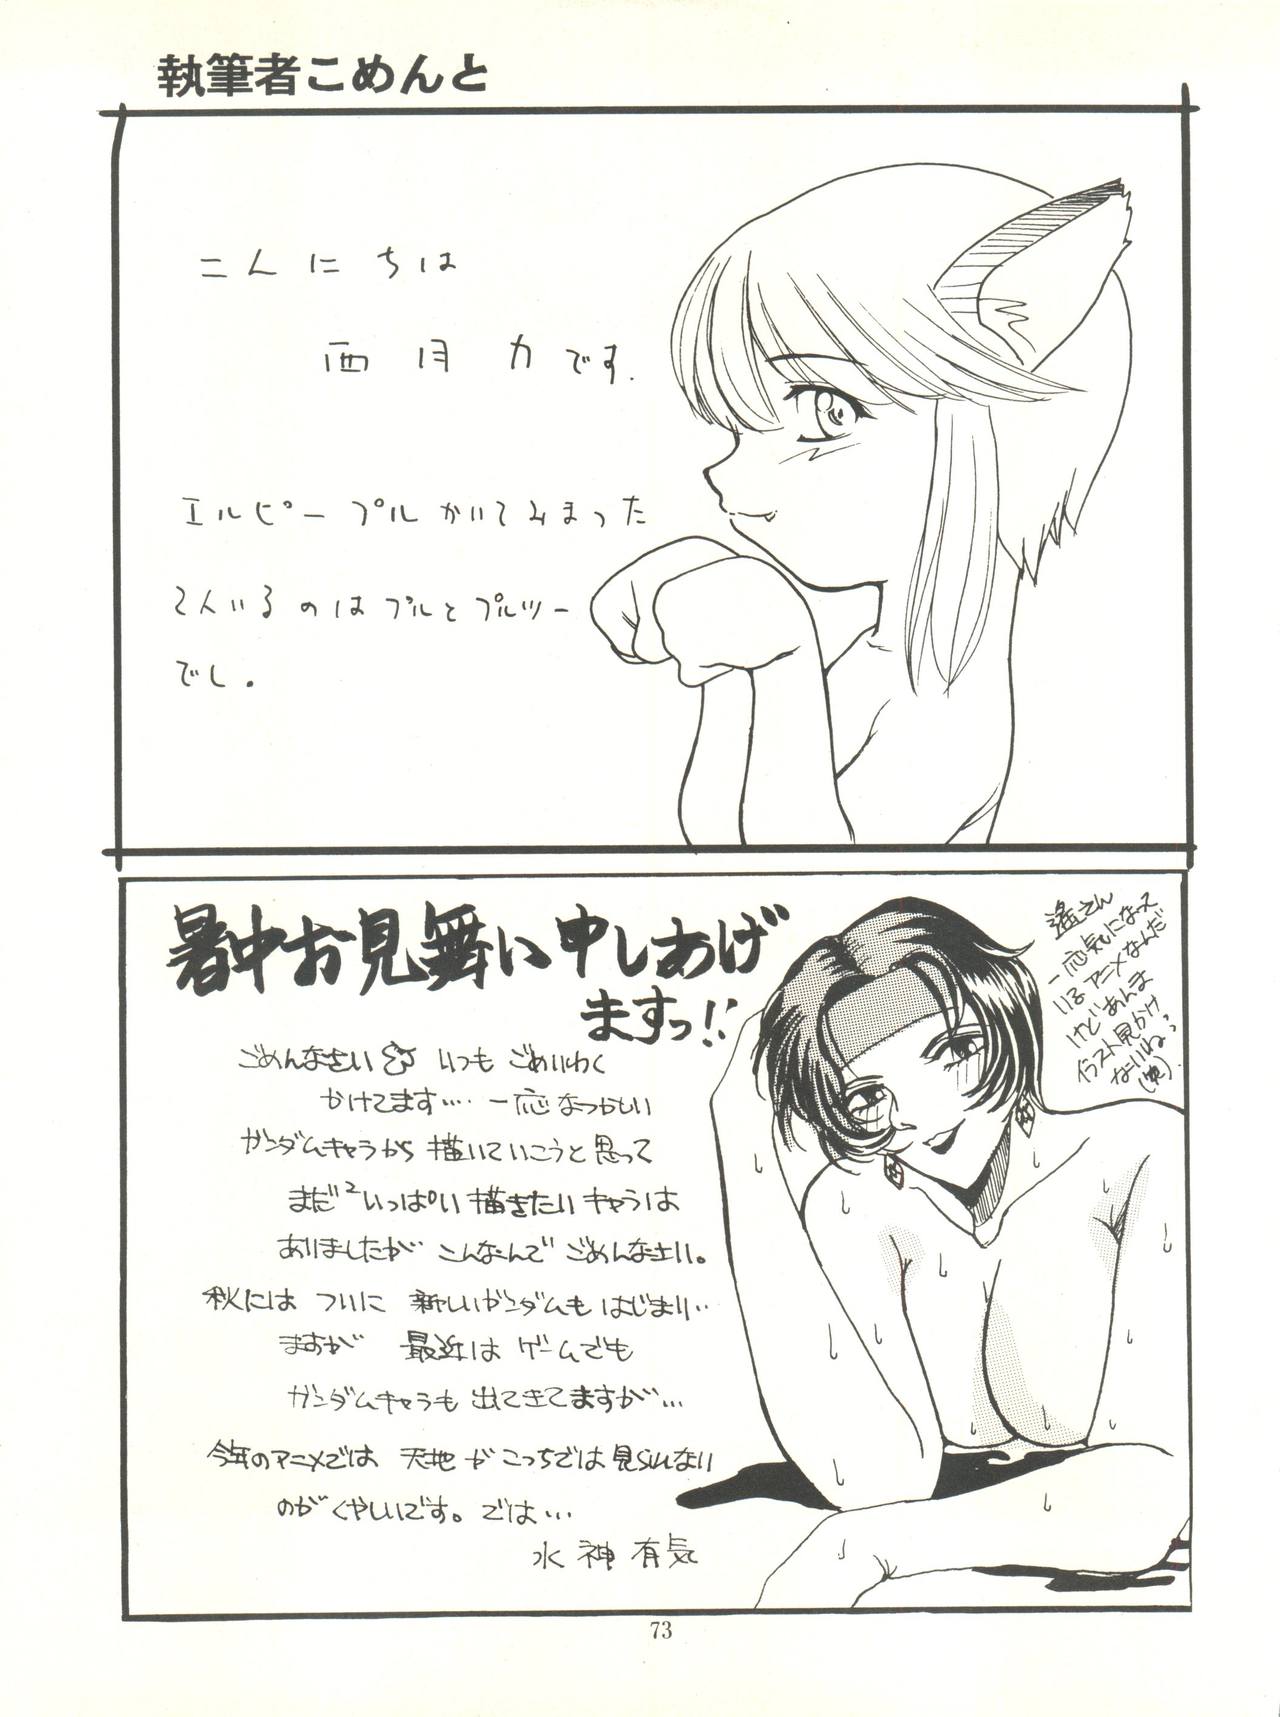 執筆者こめんと
こんにちは
西月力です.
エルピープル かいてみまった
てんいるのはプルとプルツー
でし。
暑中お見舞い申しあげ
ますっ!!
ごめんなさい いつも ごめいわく
かけてます… 一応なつかしい
ガンダムキャラから 描いていこうと思って
まだ²いっぱい描きたい キャラは
ありましたが こんなんで ごめんなさい。
秋には ついに 新しいガンダムも はじまり‥
ますが 最近は ゲームでも
ガンダムキャラも 出てきてますが…
今年のアニメでは 天地が こっちでは 見られない
のがくやしいです。では…
水神有気
遙さん
一応気になって
いるアニメなんだ
けどあんま
イラスト見かけ
ないねっ
(笑).
73